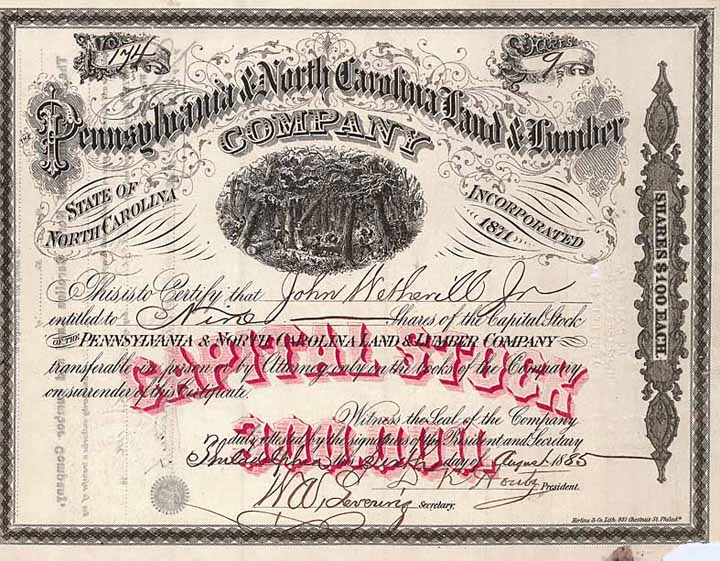 No 174
Shares 9
Pennsylvania & North Carolina Land & Lumber
COMPANY
STATE OF
NORTH CAROLINA
INCORPORATED
1871
SHARES $100 EACH.
This is to Certify that John Wetherill Jr
entitled to Nine Shares of the Capital Stock
OF THE PENNSYLVANIA & NORTH CAROLINA LAND & LUMBER COMPANY
transferable in person or by Attorney only on the books of the Company
on surrender of this Certificate.
CAPITAL STOCK
Witness the Seal of the Company
duly attested by the signatures of the President and Secretary
300,000.
Philadelphia this Sixth day of August 1885
President.
W. Levering Secretary.
Lith. 931 Chestnut St. Philada